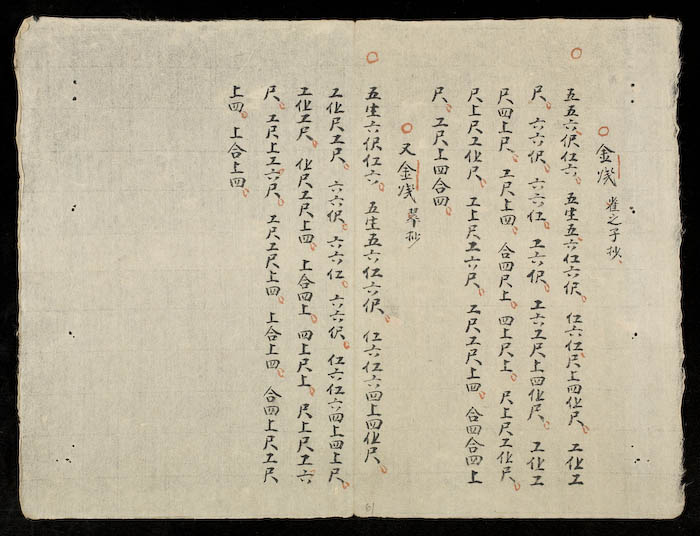 金浅 雀之子抄
五五六伬仜六 五生五六仜六伬 仜六仜尺上四化尺 工化工
尺 六六伬 六六仜 工六伬 工六工尺上四化尺 工化工
尺四上尺 工尺上四 合四尺上 四上尺上 尺上尺工化尺
尺上尺工化尺 工上尺工六尺 工尺工尺上四 合四合四上
尺 工尺上四合四
又金浅 翠抄
五生六伬仜六 五生五六仜六伬 仜六仜六四上四化尺
工化尺工尺 六六伬 六六仜 六六伬 仜六仜六四上四上尺
工化工尺 化尺工尺上四 上合四上 四上尺上 尺上尺工六
尺 工尺上工六尺 工尺工尺上四 上合上四 合四上尺工尺
上四 上合上四